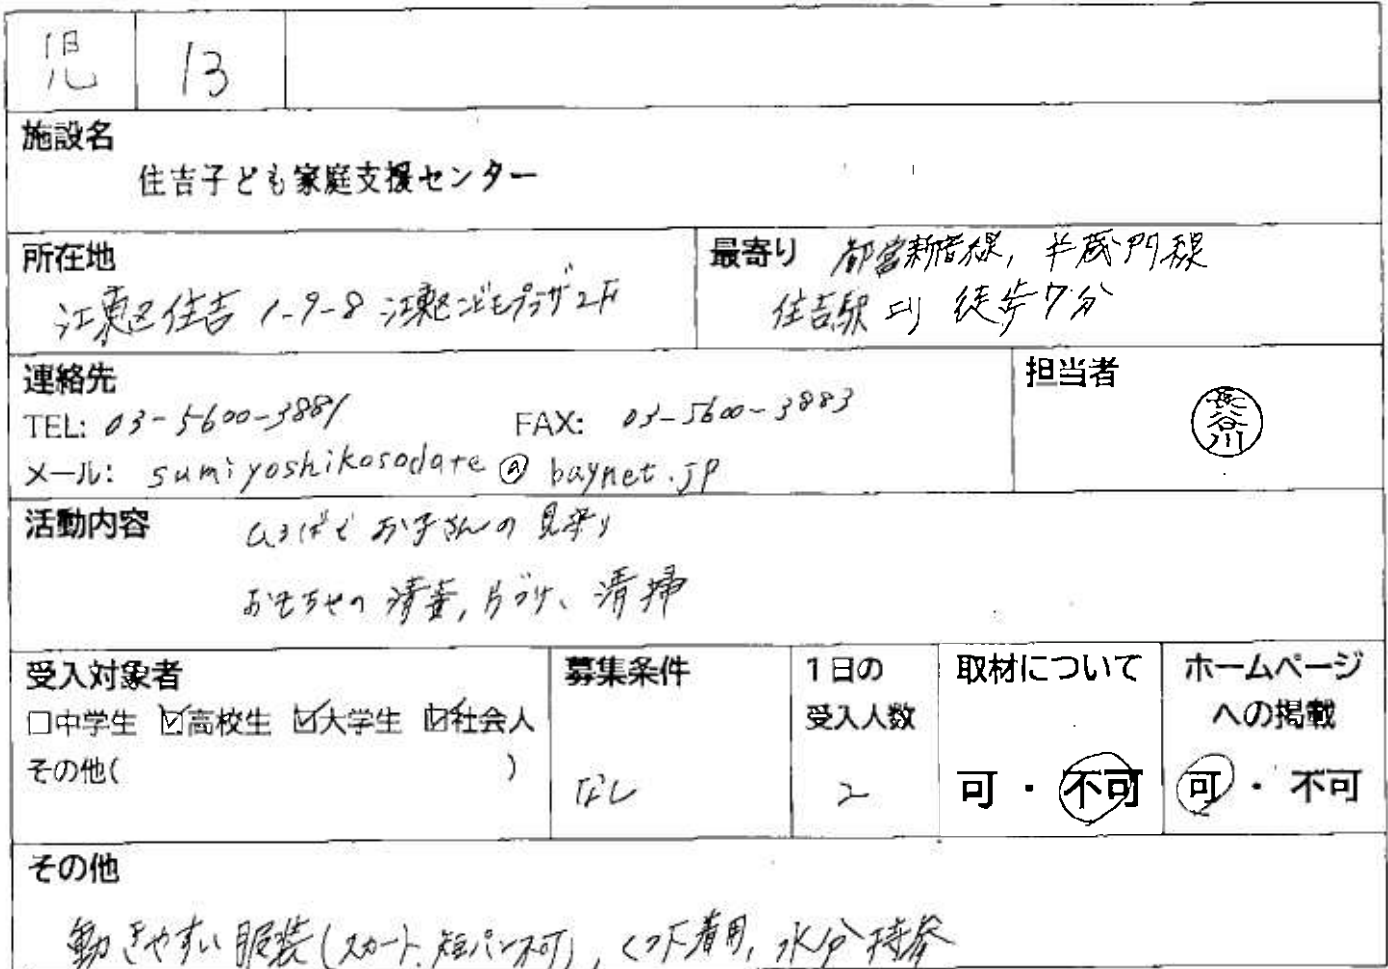 児 13
施設名
住吉子ども家庭支援センター
所在地
江東区住吉 1-9-8 江東区こどもプラザ2F
最寄り 都営新宿線, 半蔵門線
住吉駅より 徒歩7分
連絡先
TEL: 03-5600-3881 FAX: 03-5600-3883
メール: sumiyoshikosodate@baynet.jp
担当者
長谷川
活動内容 ひろばでお子さんの見守り
おもちゃの清拭, 片づけ、清掃
受入対象者
□中学生 ☑高校生 ☑大学生 ☑社会人
その他( )
募集条件
なし
1日の
受入人数
2
取材について
可・不可
ホームページ
への掲載
可・不可
その他
動きやすい服装(スカート、短パン不可), くつ下着用, 水分持参